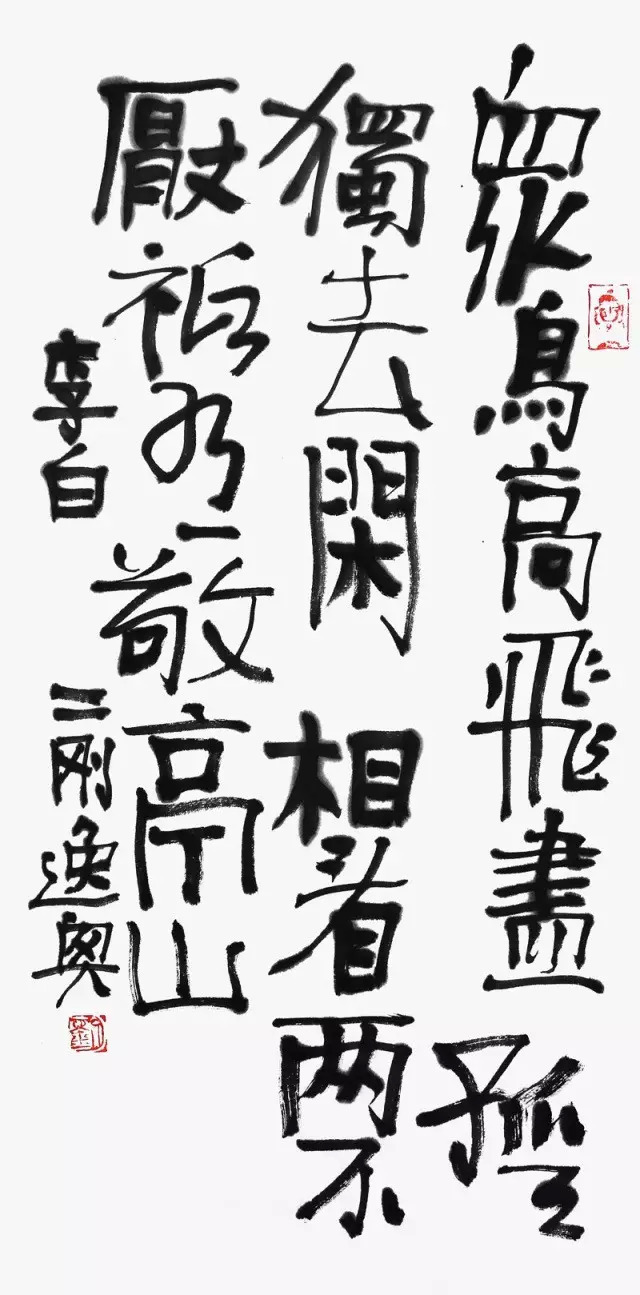 眾鳥高飛盡孤云
獨去閑相看两不
厭祗有敬亭山
李白 二刚逸興